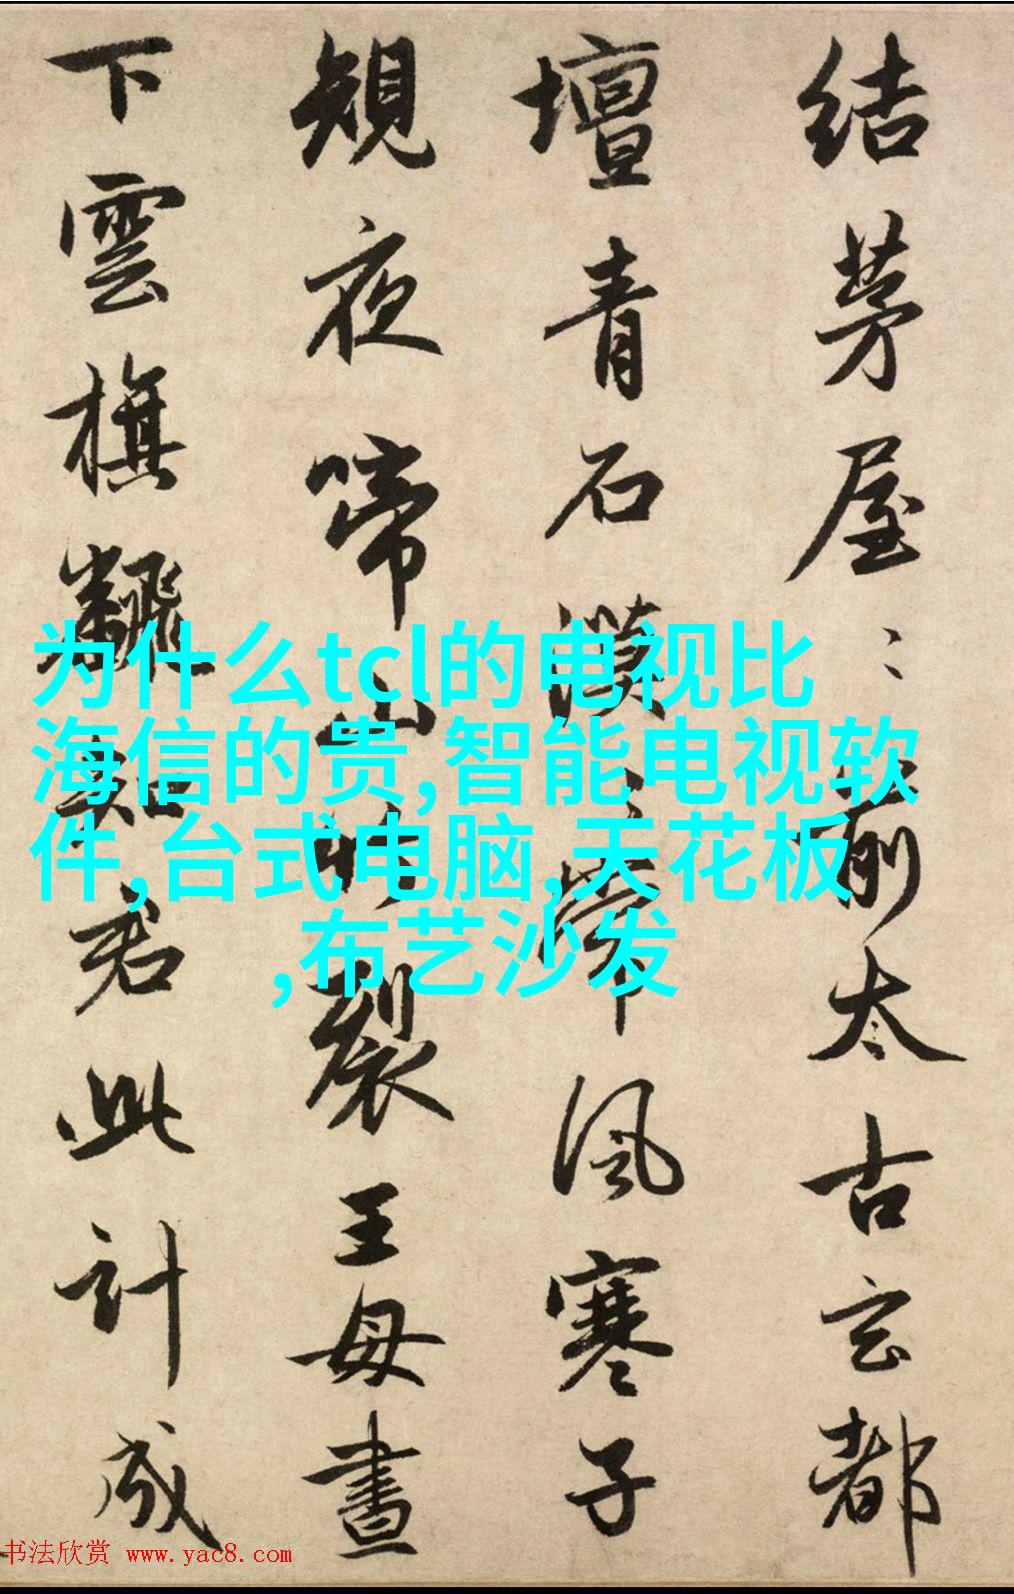 結茅屋〻前太古玄都
壇青石漠〻常風寒子
規夜啼山竹裂王母晝
下雲旗飜知君此計成
为什么tcl的电视比
海信的贵,智能电视软
件,台式电脑,天花板
,布艺沙发
书法欣赏 www.yac8.com